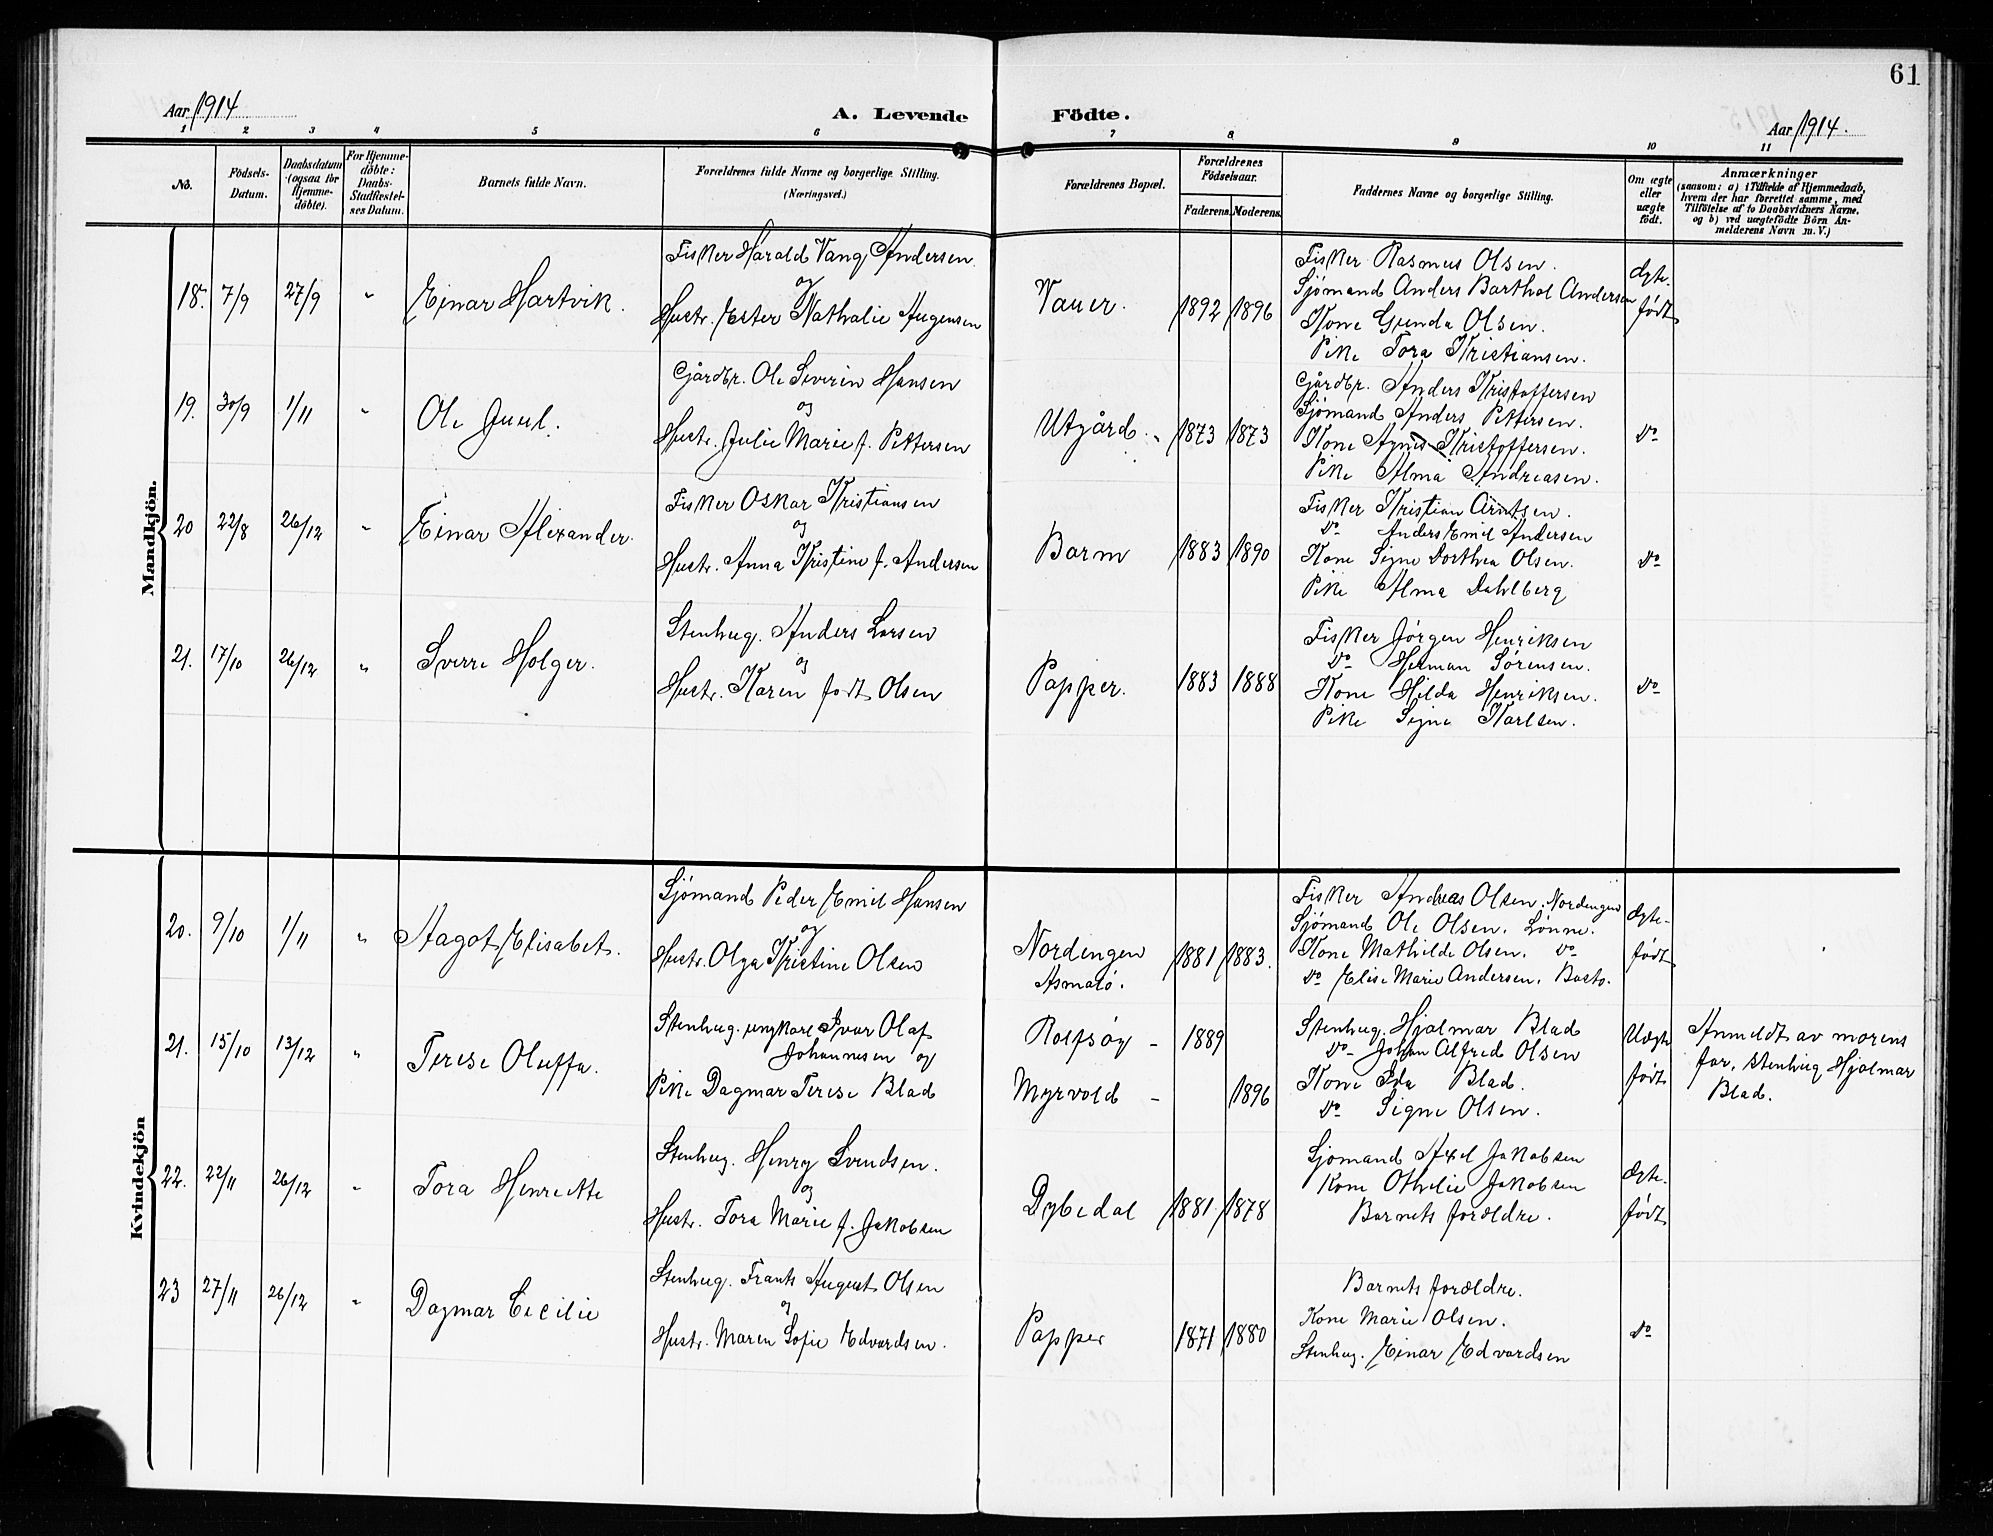 61
Aar 1914
A. Levende Födte.
Aar 1914.
1 2 3 4 5 6 7 8 9 10 11
No.
Födsels-
Datum.
Daabsdatum
(ogsaa for
Hjemme-
döbte).
For Hjemme-
döbte:
Daabs-
Stadfæstel-
ses Datum.
Barnets fulde Navn.
Forældrenes fulde Navne og borgerlige Stilling.
(Næringsvei.)
Forældrenes Bopæl.
Forældrenes
Födselsaar.
Faderens. Moderens.
Faddernes Navne og borgerlige Stilling.
Om ægte
eller
uægte
födt.
Anmærkninger
(saasom: a) i Tilfælde af Hjemmedaab,
hvem der har forrettet samme, med
Tilföielse af to Daabsvidners Navne,
og b) ved uægtefödte Börn An-
melderens Navn m. V.)
Mandkjön.
18. 7/9 27/9 " Einar Hartvik.
Fisker Harald Vang Andersen
og
Hustr. Ester Nathalie Augensen
Vauer. 1892 1896
Fisker Rasmus Olsen.
Sjömand Anders Barthol Andersen
Kone Gunda Olsen.
Pike Tora Kristiansen.
Ægte-
født
19. 30/9 1/11 " Ole Juul.
Gårdbr. Ole Severin Hansen
og
Hustr. Julie Marie f. Pettersen
Utgård. 1873 1873
Gårdbr. Anders Kristoffersen
Sjömand Anders Pettersen.
Kone Agnes Kristoffersen.
Pike Alma Andreasen.
Do
20 22/8 26/12 " Einar Alexander.
Fisker Oskar Kristiansen
og
Hustr. Anna Kristine f. Andersen
Barm 1883 1890
Fisker Kristian Arntsen.
Do Anders Emil Andersen
Kone Signe Dorthea Olsen.
Pike Alma Dahlberg
Do
21. 17/10 26/12 " Sverre Holger.
Stenhug. Anders Larsen
og
Hustr. Karen født Olsen
Papper. 1883 1888
Fisker Jørgen Henriksen
Do Herman Sørensen.
Kone Hilda Henriksen.
Pike Signe Karlsen.
Do
Kvindekjön
20. 9/10 1/11 " Aagot Elisabet.
Sjömand Peder Emil Hansen
og
Hustr. Olga Kristine Olsen
Nordengen
Asmalö.
1881 1883.
Fisker Andreas Olsen. Nordengen
Sjömand Ole Olsen. Lønne.
Kone Mathilde Olsen. Do
Do Elise Marie Andersen. Basto.
Ægte-
født
21. 15/10 13/12 " Terese Oluffa.
Stenhug. ungkarl Ivar Olaf
Johannesen og
Pike Dagmar Terese Blad
Rolfsøy - 1889
Myrvold - 1896
Stenhug. Hjalmar Blad
Do- Johan Alfred Olsen
Kone Ida Blad.
Do Signe Olsen.
Uægte
født
Anmeldt av morens
far, stenhug Hjalmar
Blad.
22. 22/11 26/12 " Tora Henriette
Stenhug. Henry Svendsen.
og
Hustr. Tora Marie f. Jakobsen
Dybedal 1881 1878
Sjömand Axel Jakobsen
Kone Othilie Jakobsen
Barnets forældre.
Ægte-
født
23 27/11 26/12 " Dagmar Cecilie
Stenhug. Frants August Olsen
og
Hustr. Maren Sofie Edvardsen.
Papper 1871 1880
Barnets forældre.
Kone Marie Olsen.
Stenhug. Einar Edvardsen
Do